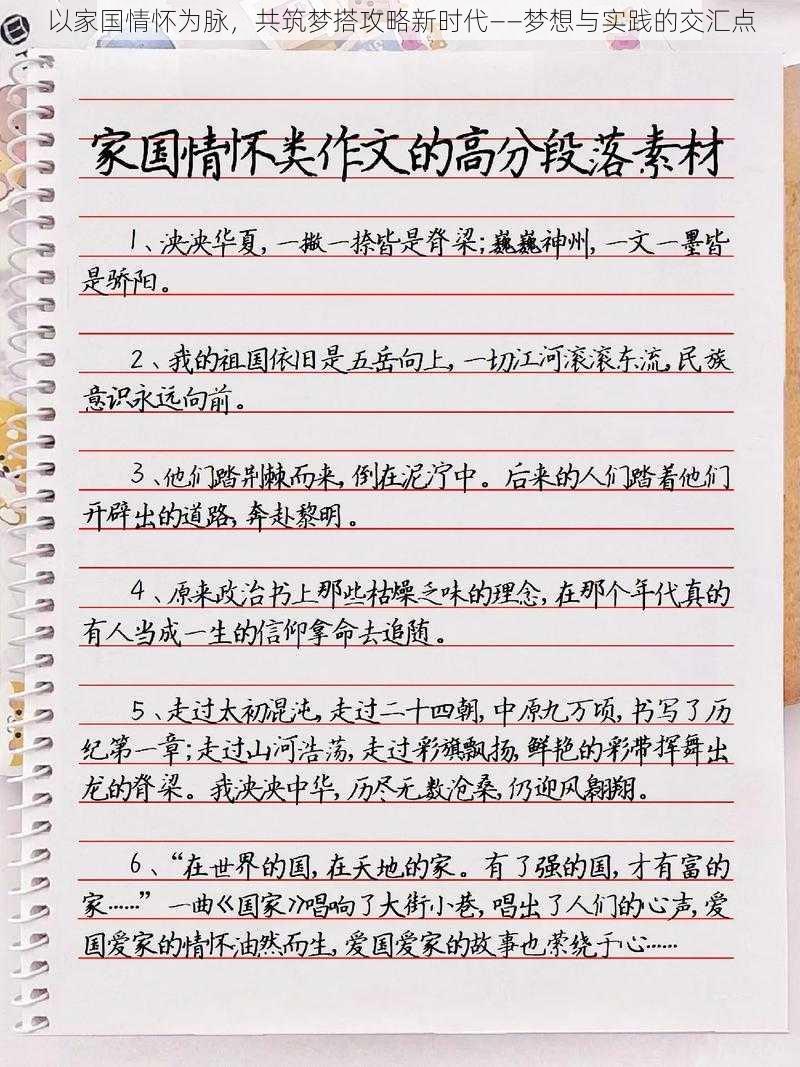 以家国情怀为脉，共筑梦搭攻略新时代——梦想与实践的交汇点
家国情怀类作文的高分段落素材
1、泱泱华夏，一撇一捺皆是脊梁；巍巍神州，一文一墨皆
是骄阳。
2、我的祖国依旧是五岳向上，一切江河滚滚东流，民族
意识永远向前。
3、他们踏荆棘而来，倒在泥泞中。后来的人们踏着他们
开辟出的道路，奔赴黎明。
4、原来政治书上那些枯燥乏味的理念，在那个年代真的
有人当成一生的信仰拿命去追随。
5、走过太初混沌，走过二十四朝，中原九万顷，书写了历
纪第一章；走过山河浩荡，走过彩旗飘扬，鲜艳的彩带挥舞出
龙的脊梁。我泱泱中华，历尽无数沧桑，仍迎风翱翔。
6、“在世界的国，在天地的家。有了强的国，才有富的
家……”一曲《国家》唱响了大街小巷，唱出了人们的心声，爱
国爱家的情怀油然而生，爱国爱家的故事也萦绕于心……